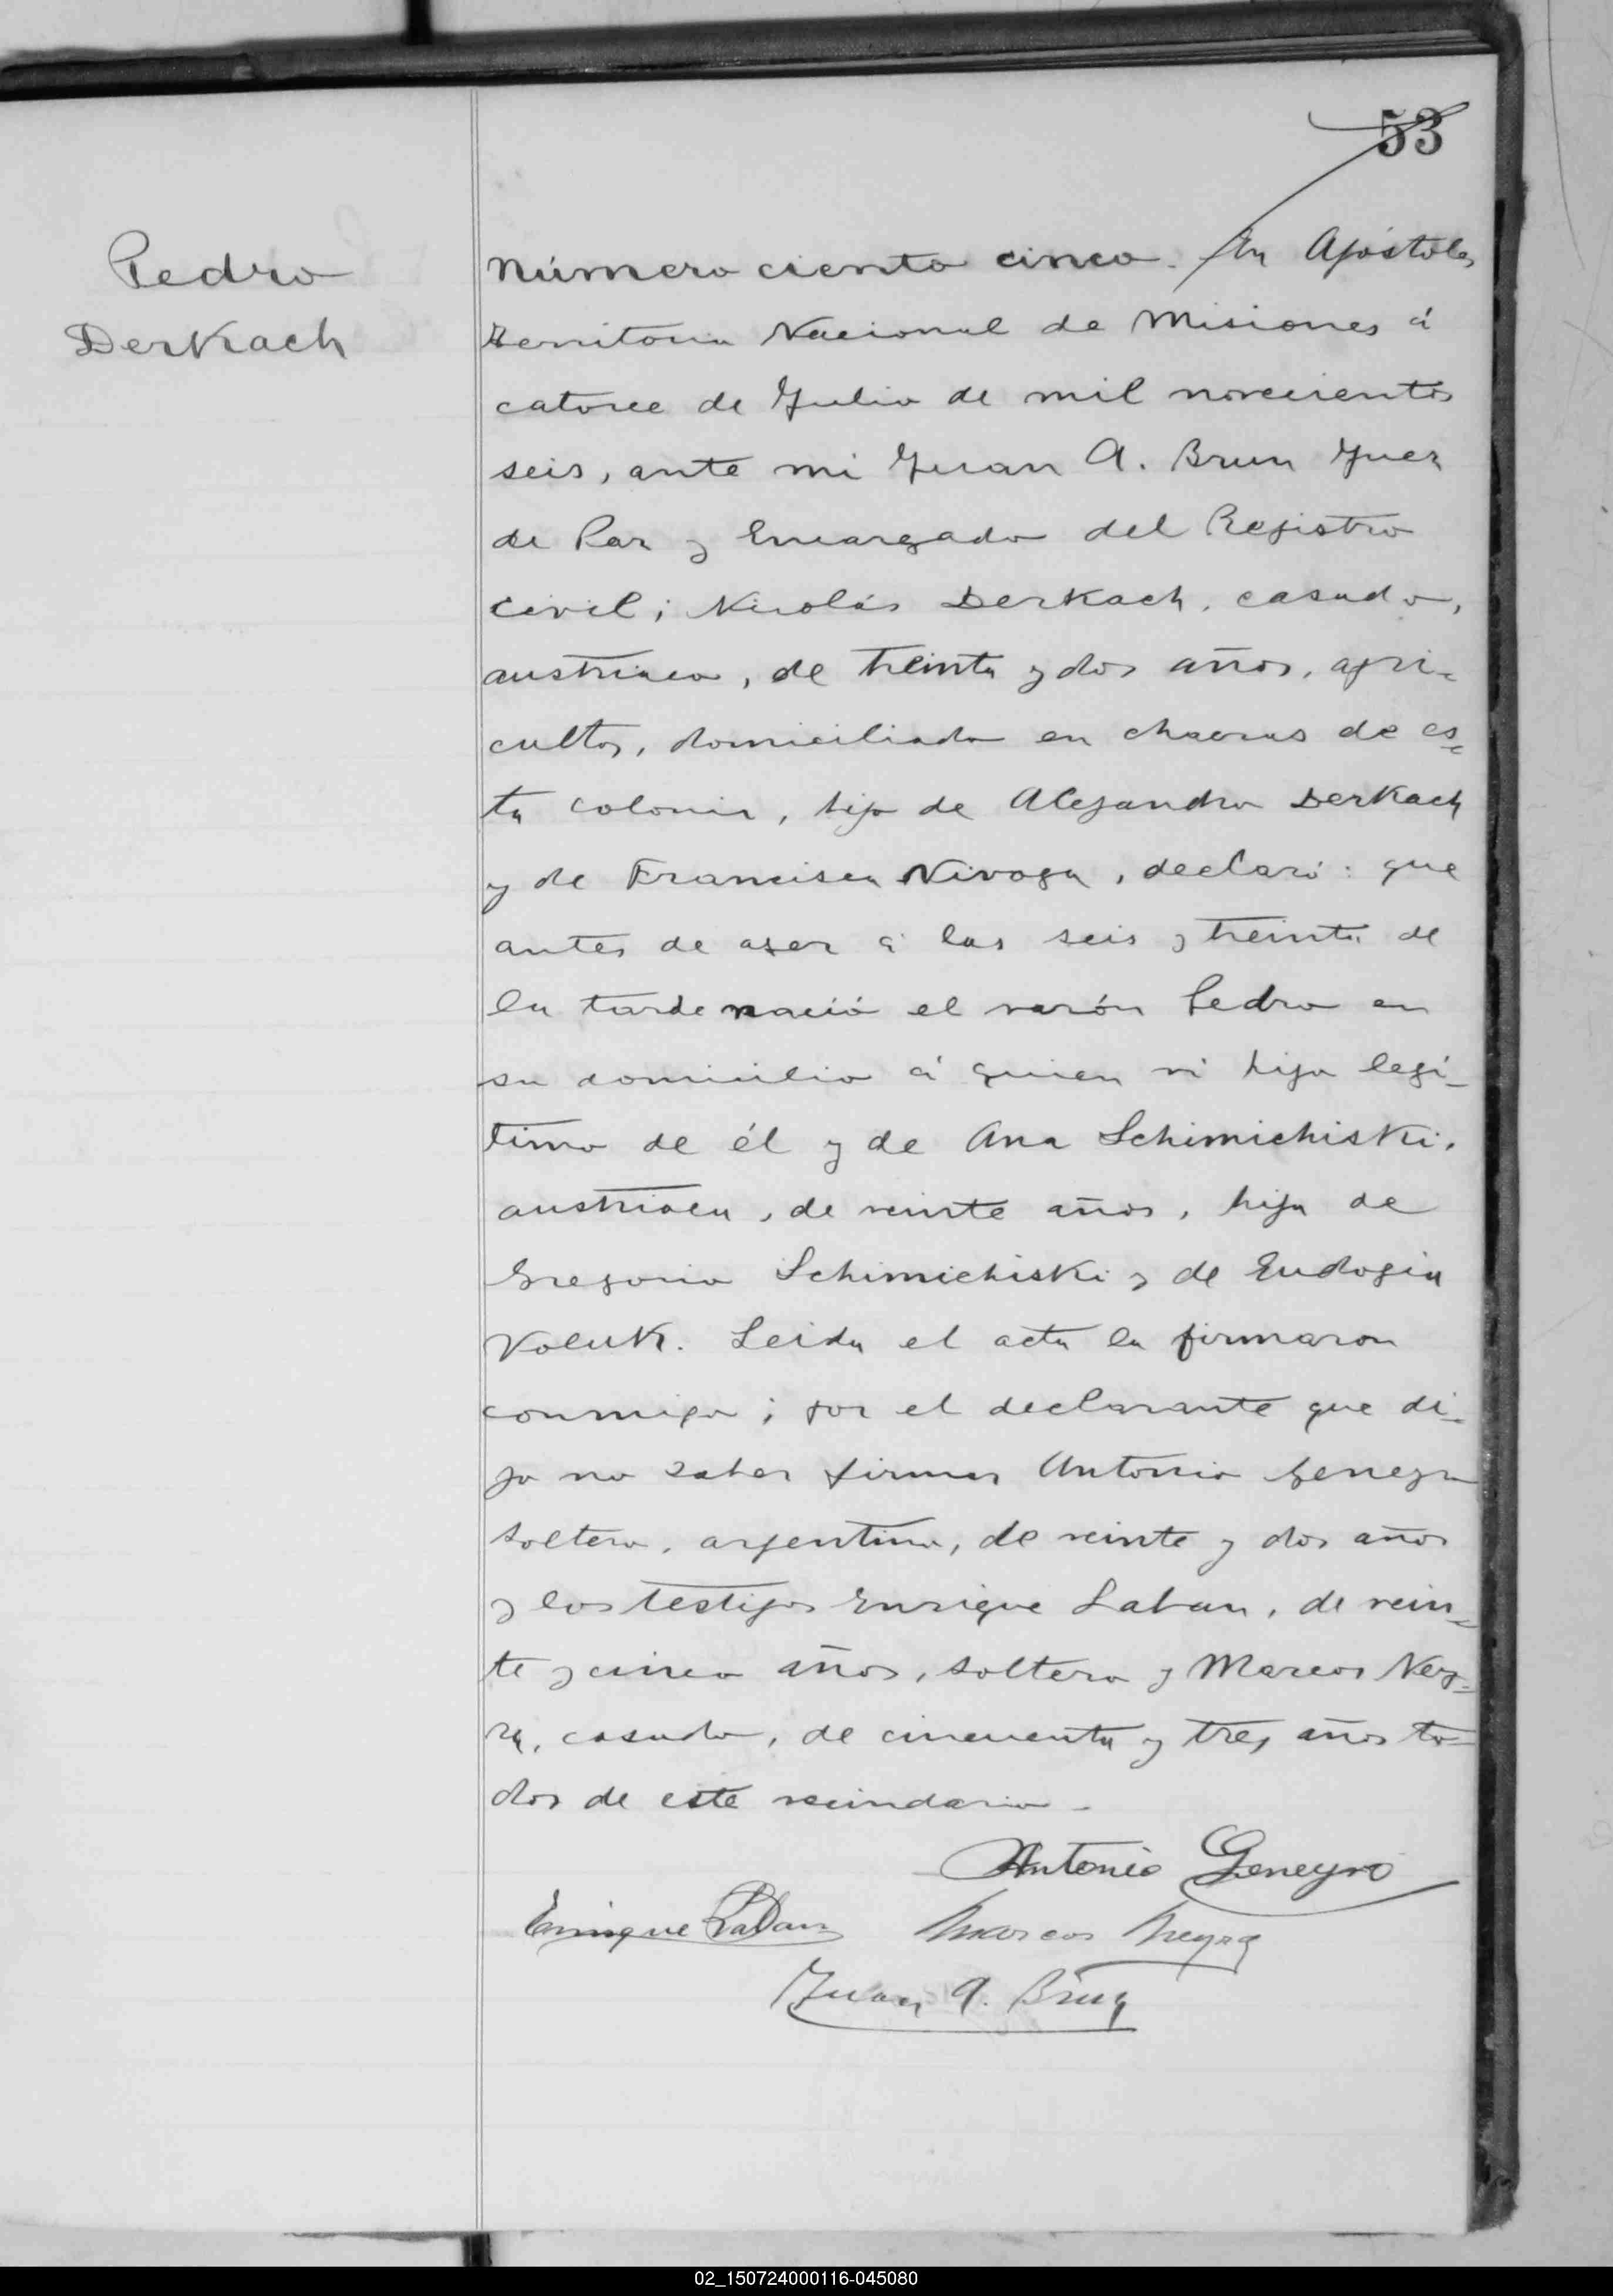 53
Pedro
Derkach
Número ciento cinco. En Apóstoles
Territorio Nacional de Misiones á
catorce de Julio de mil novecientos
seis, ante mi Juan A. Brun Juez
de Paz y Encargado del Registro
civil; Nicolás Derkach, casado,
austriaco, de treinta y dos años, agri-
cultor, domiciliado en chacras de es-
ta colonia, hijo de Alejandro Derkach
y de Francisca Nivoga, declaró: que
antes de ayer á las seis y treinta de
la tarde nació el varón Pedro en
su domicilio á quien vi hijo legí-
timo de él y de Ana Schimichiski,
austriaca, de veinte años, hija de
Gregorio Schimichiski y de Eudogia
Voluk. Leida el acta la firmaron
conmigo; por el declarante que di-
jo no saber firmar Antonio Geneyro
soltero, argentino, de veinte y dos años
y los testigos Enrique Laban, de vein-
te y cinco años, soltero y Marcos Ney-
ra, casado, de cincuenta y tres años to-
dos de este vecindario -
Antonio Geneyro
Enrique Laban Marcos Neyra
Juan A. Brun
02_150724000116-045080